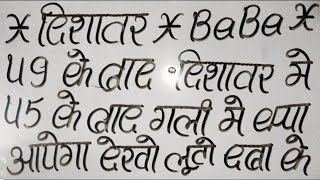 * दिशावर * BaBa *
49 के बाद दिशावर मे
45 के बाद गली मे क्या
आयेगा देखो लूटो दबा के